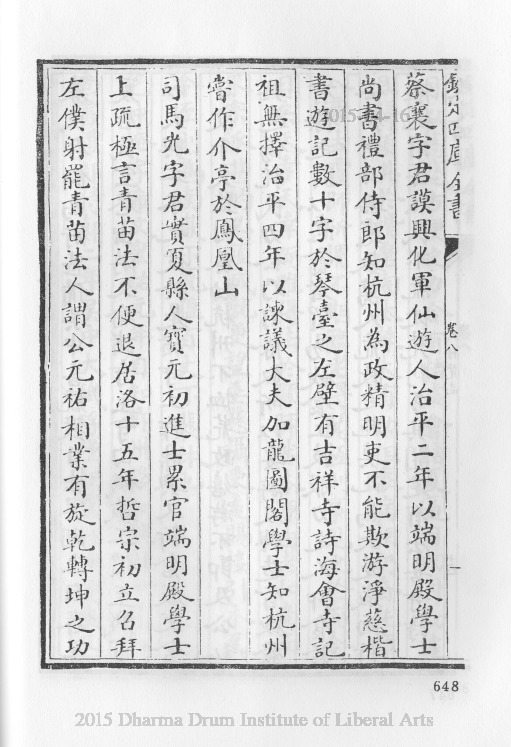 欽定四庫全書
卷八
一
蔡襄字君謨興化軍仙遊人治平二年以端明殿學士
尚書禮部侍郎知杭州為政精明吏不能欺游淨慈楷
書遊記數十字於琴臺之左壁有吉祥寺詩海會寺記
祖無擇治平四年以諫議大夫加龍圖閣學士知杭州
嘗作介亭於鳳凰山
司馬光字君實夏縣人寶元初進士累官端明殿學士
上疏極言青苗法不便退居洛十五年哲宗初立召拜
左僕射罷青苗法人謂公元祐相業有旋乾轉坤之功
648
2015 Dharma Drum Institute of Liberal Arts